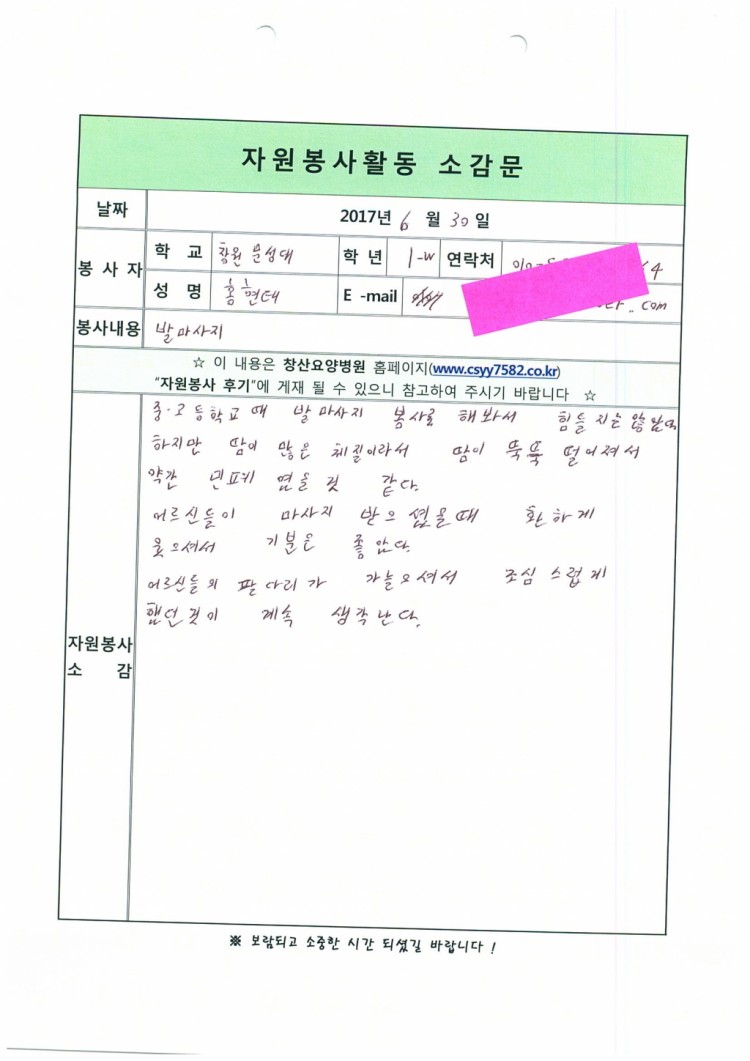 자원봉사활동 소감문
날짜 2017년 6 월 30 일
봉 사 자 학 교 창원 문성대 학 년 1-w 연락처 010- 4
성 명 홍현태 E -mail .. com
봉사내용 발마사지
☆ 이 내용은 창산요양병원 홈페이지(www.csyy7582.co.kr)
"자원봉사 후기"에 게재 될 수 있으니 참고하여 주시기 바랍니다 ☆
자원봉사
소 감
중·고등학교 때 발 마사지 봉사를 해봐서 힘들 지는 않았다
하지만 땀이 많은 체질이라서 땀이 뚝뚝 떨어져서
약간 민폐 였을 것 같다.
어르신들이 마사지 받으셨을때 환하게
웃으셔서 기분은 좋았다.
어르신들의 팔다리가 가늘으셔서 조심 스럽게
했던것이 계속 생각난다.
※ 보람되고 소중한 시간 되셨길 바랍니다 !